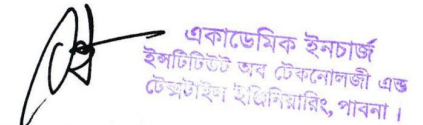 একাডেমিক ইনচার্জ
ইন্সটিটিউট অব টেকনোলজী এন্ড
টেক্সটাইল ইঞ্জিনিয়ারিং, পাবনা।